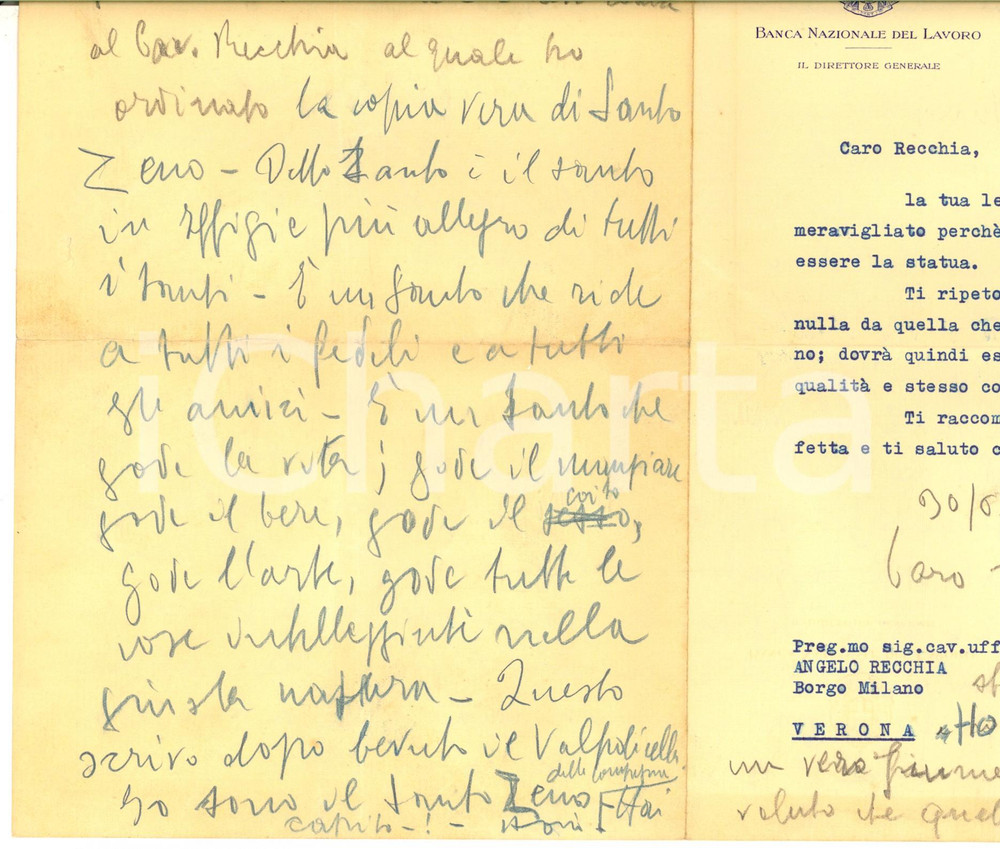 al Cav. Recchia al quale ho
ordinato la copia vera di Santo
Zeno - Detto Santo è il santo
in effigie più allegro di tutti
i Santi - È un Santo che ride
a tutti i fedeli e a tutti
gli amici - È un Santo che
gode la vita; gode il mangiare
gode il bere, gode il sesso,
coito
gode l'arte, gode tutte le
cose nella
giusta natura - Questo
scrivo dopo bevuto il Valpolicella
Io sono il Santo Zeno
capito - ! -
BANCA NAZIONALE DEL LAVORO
IL DIRETTORE GENERALE
Caro Recchia,
la tua le
meravigliato perchè
essere la statua.
Ti ripeto
nulla da quella che
no; dovrà quindi es
qualità e stesso co
Ti raccom
fetta e ti saluto c
30/6
Caro -
Preg.mo sig.cav.uff
ANGELO RECCHIA
Borgo Milano
VERONA
Ho
un vero
veluto che quel
iCharta